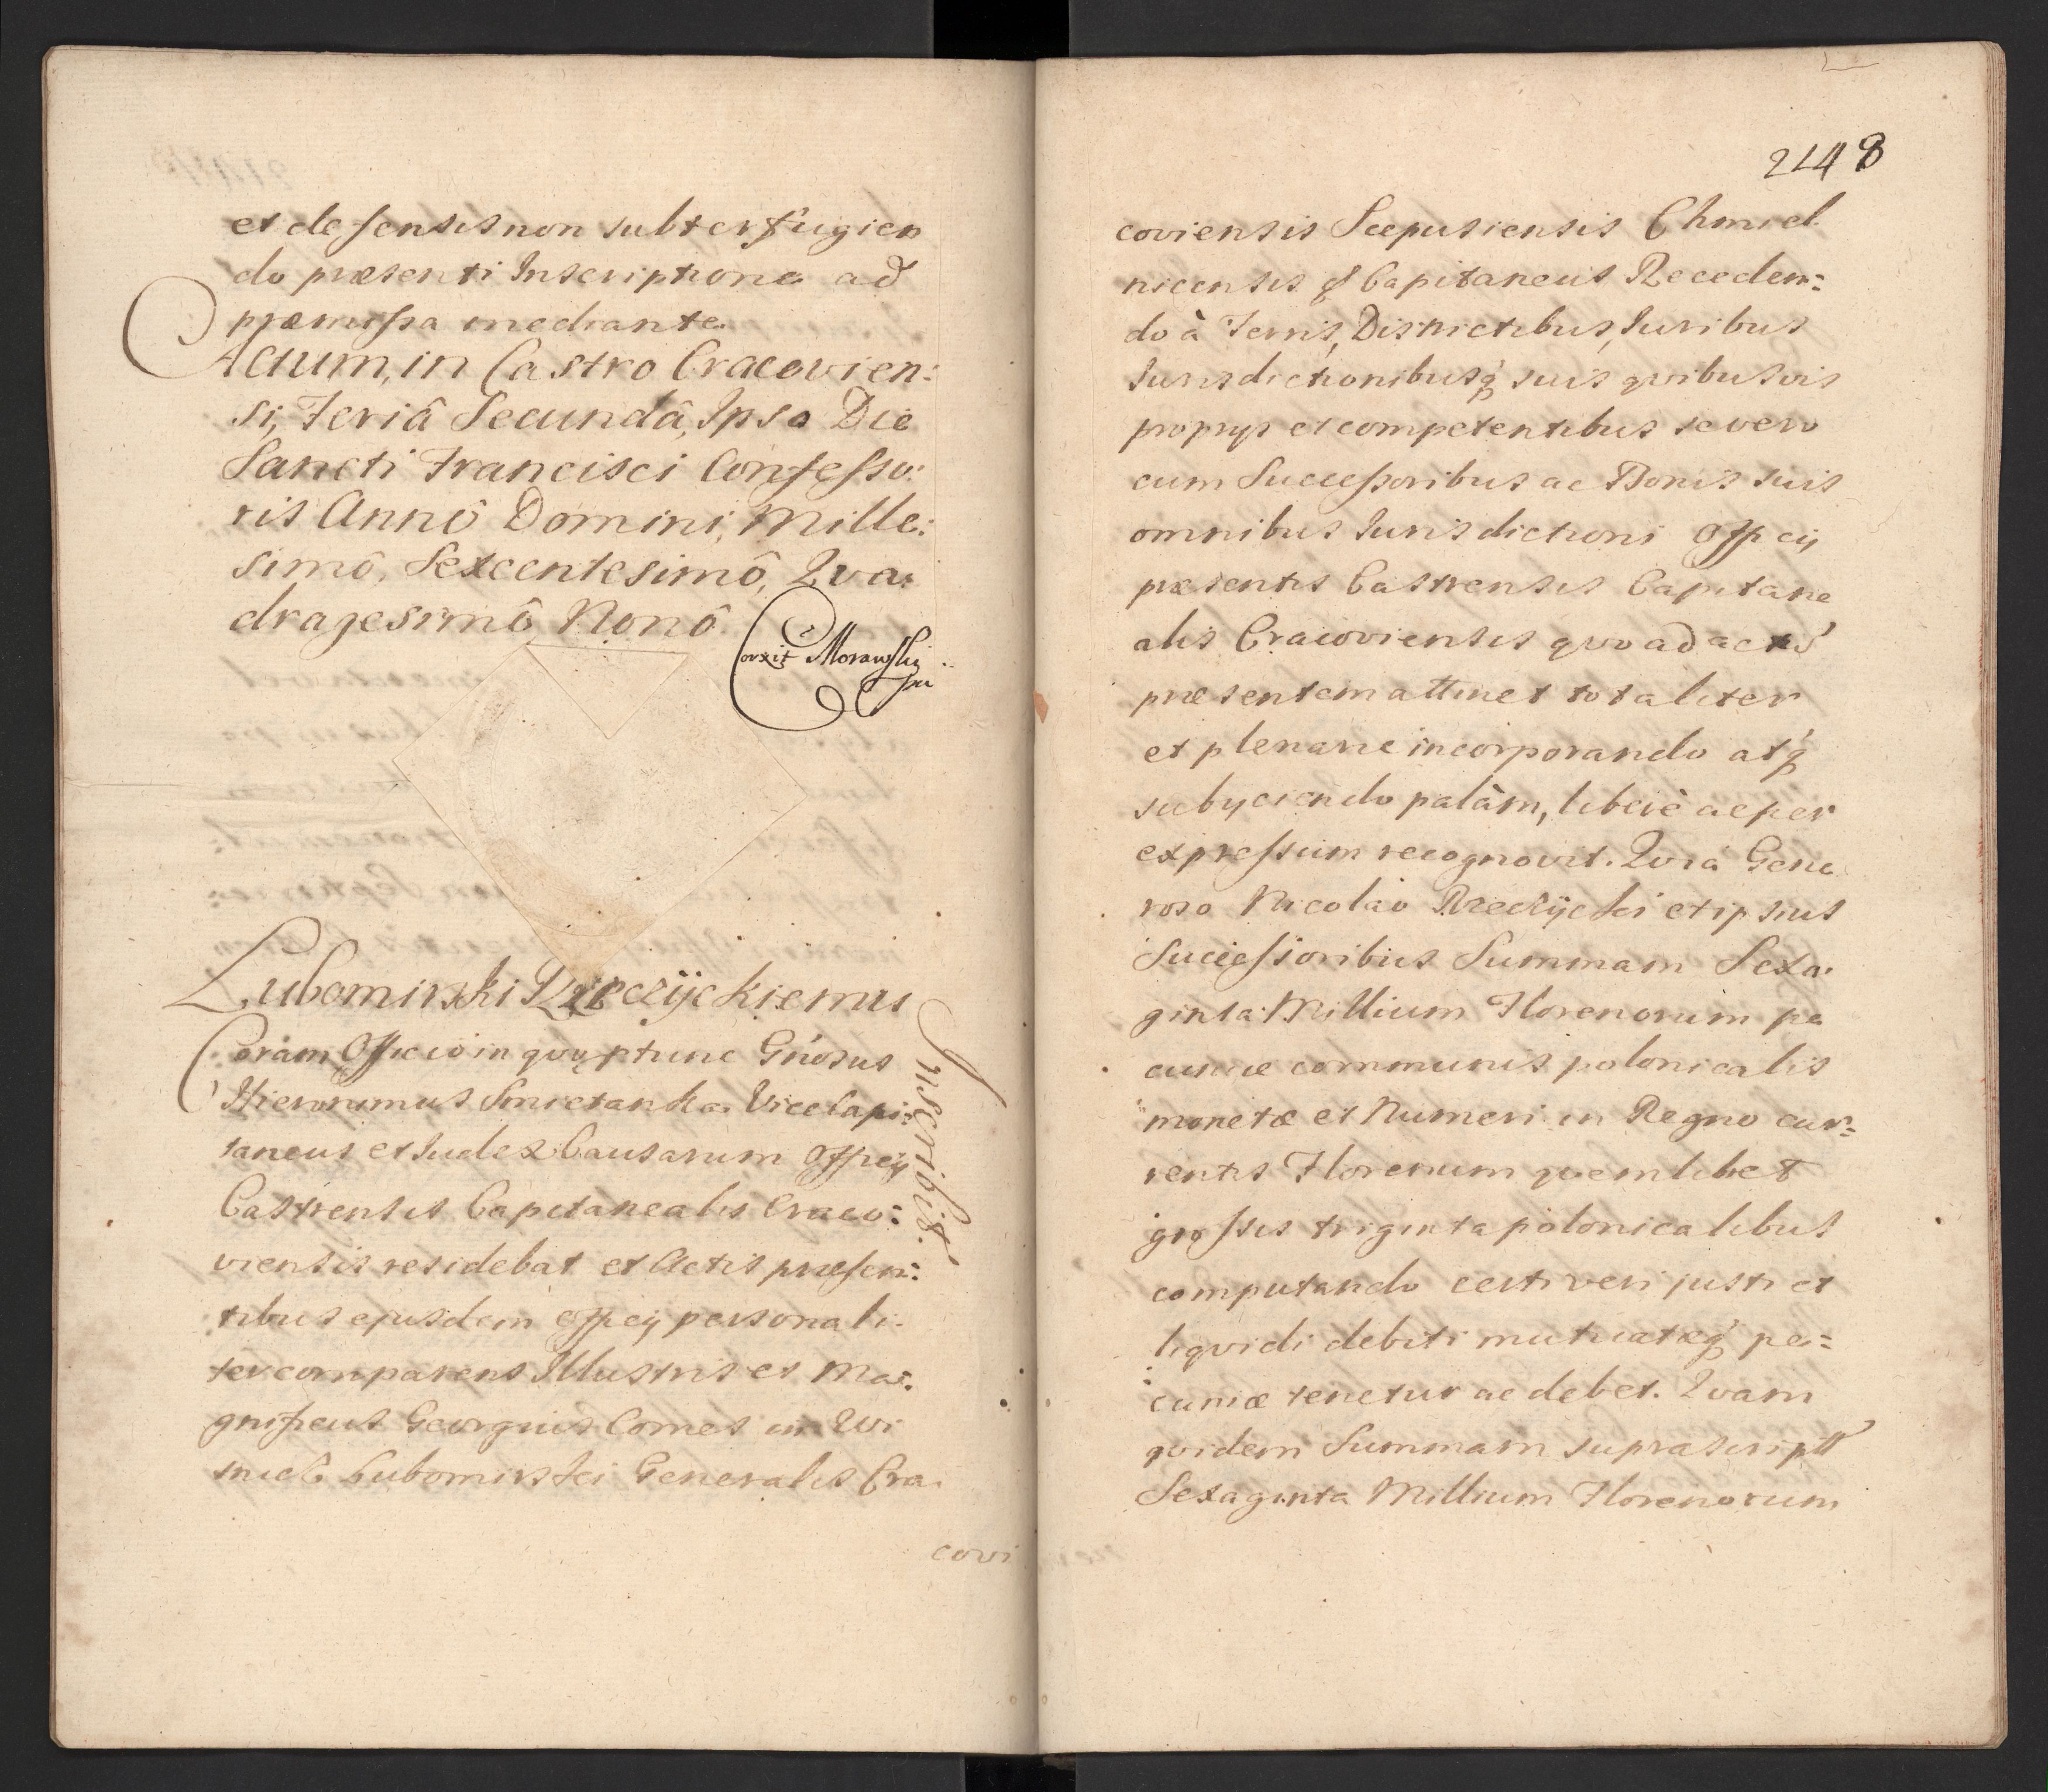 et defensis non subterfugien
do præsenti Inscriptione ad
præmissa mediante.
Actum, in Castro Cracovien:
si, Feriâ Secundâ, Ipso Die
Sancti Francisci Confesso:
ris Annô Domini, Mille:
simô, Sexcentesimô, Qva:
dragesimô Nonô.
Corxit Morawski
mp
Lubomirski Rzeczÿckiemu
Inscribit.
Coram Officio in quo ptunc Gnosus
Hieronimus Smietanka Vicecapi:
taneus et Judex Causarum Officij
Castrensis Capitanealis Craco:
viensis residebat et Actis præsen:
tibus ejusdem officij personali:
ter comparens Illustris et Ma:
gnificus Georgius Comes in Wi
snicz Lubomirski Generalis Cra:
covi
2148
coviensis Scepusiensis Chmiel
nicensis & Capitaneus Receden:
do à Terris, Districtibus, Juribus
Jurisdictionibusq suis qvibusvis
proprijs et competentibus se vero
cum Successoribus ac Bonis suis
omnibus Jurisdictioni Officij
præsentis Castrensis Capitane
alis Cracoviensis qvo ad actũ
præsentem attinet totaliter
et plenarie incorporando atq
subyciendo palàm, liberè ac per
expressum recognovit. Qvia Gene
roso Nicolao Rzeczÿcki et ipsius
Successoribus Summam Sexa:
ginta Millium Florenorum pe
cuniæ communis polonicalis
monetæ et Numeri in Regno cur:
rentis Florenum qvemlibet
grossis triginta polonicalibus
computando certi veri justi et
liqvidi debiti mutuatæq pe:
cuniæ tenetur ac debet. Qvam
qvidem Summam suprascriptã
Sexaginta Millium Florenorum